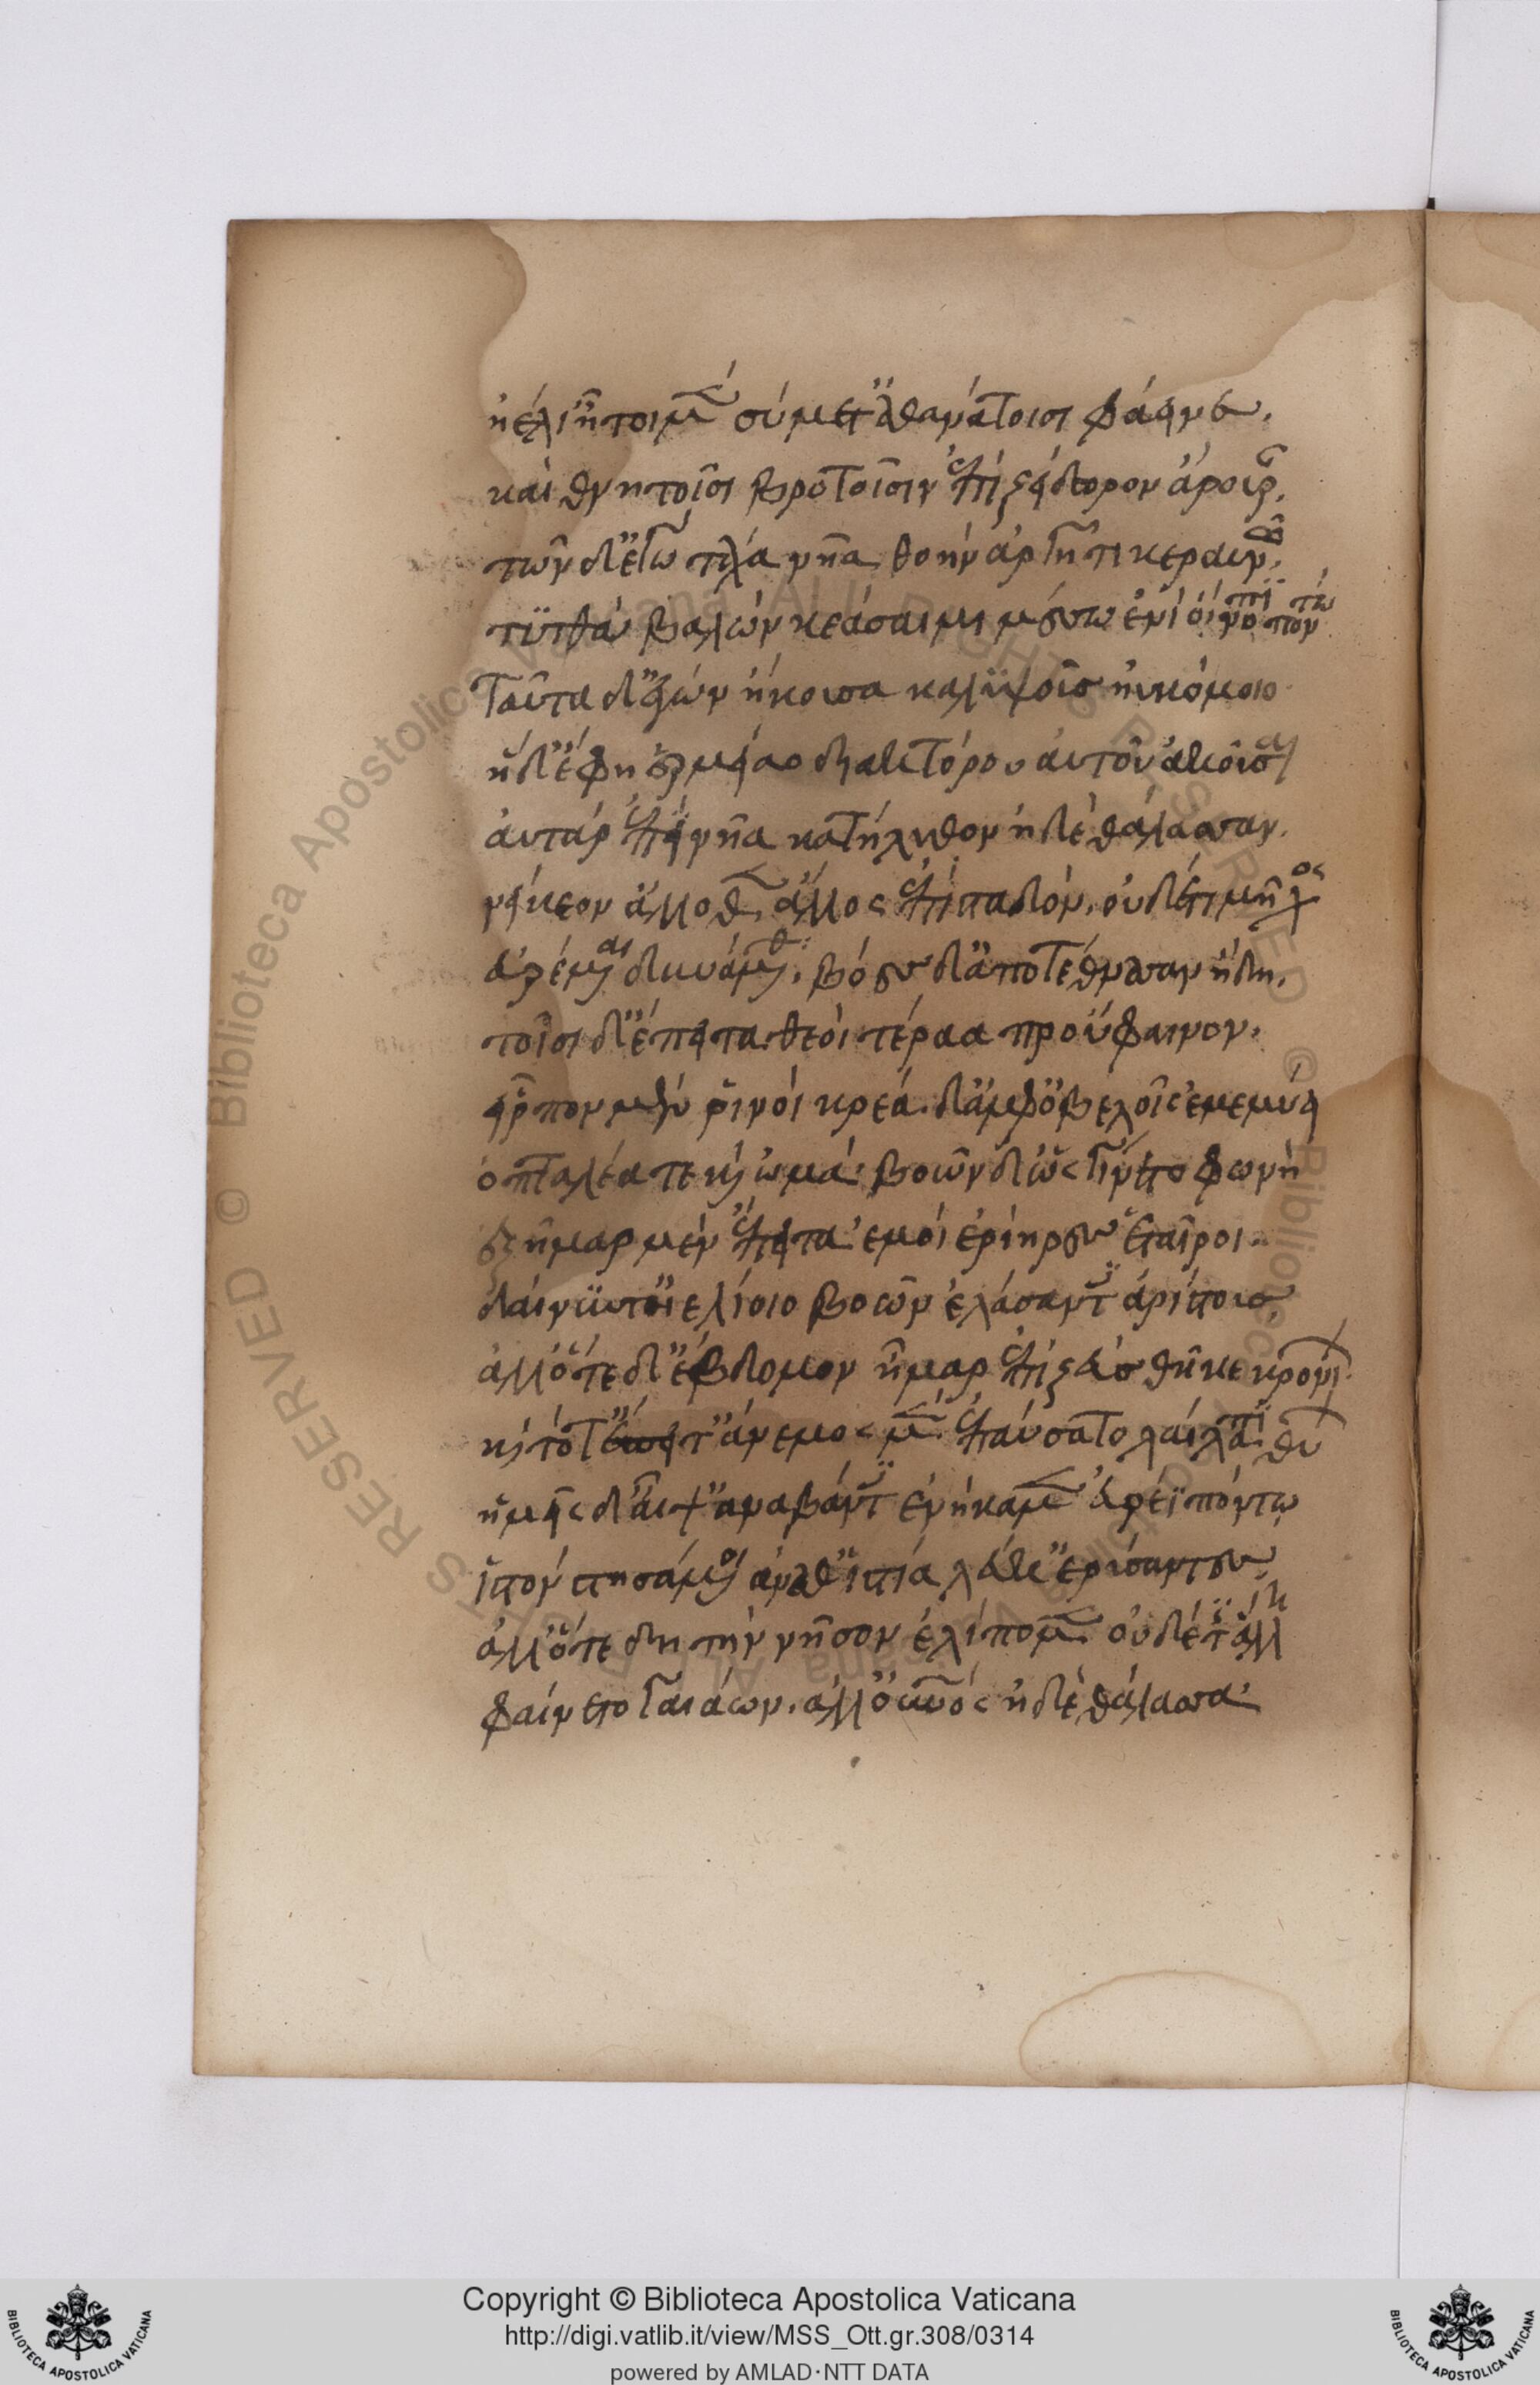 ἠέλι' ἤτοι μὲν σὺ μετ' ἀθανάτοισι φάεινε.
καὶ θνητοῖσι βροτοῖσιν ἐπὶ ζείδωρον ἄρουραν.
τῶν δέ κ' ἐγὼ τάχα νῆα θοὴν ἀργῆτι κεραυνῷ.
τυτθὰ βαλὼν κεάσαιμι μέσῳ ἐνὶ οἴνοπι πόντῳ
ταῦτα δ' ἐγὼν ἤκουσα καλυψοῦς ἠυκόμοιο
ἡ δ' ἔφη ἑρμείαο διακτόρου αὐτὸν ἀκοῦσαι
αὐτὰρ ἐπεὶ νῆα κατήλυθον ἠδὲ θάλασσαν.
νείκεον ἄλλοθεν ἄλλος ἐπισταδόν. οὐδέ τι μῆχος
εὑρέμεναι δυνάμεσθα. βόες δ' ἀποτέθνασαν ἤδη.
τοῖσι δ' ἔπειτα θεοὶ τέραα προὔφαινον.
εἷρπον μὲν ῥινοὶ κρέα δ' ἀμφ' ὀβελοῖς ἐμεμύκει
ὀπταλέα τε καὶ ὠμά. βοῶν δ' ὣς γίνετο φωνή
ἑξῆμαρ μὲν ἔπειτα ἐμοὶ ἐρίηρες ἑταῖροι
δαίνυντ' ἠελίοιο βοῶν ἐλάσαντες ἀρίστους.
ἀλλ' ὅτε δ' ἕβδομον ἦμαρ ἐπὶ ζεὺς θῆκε κρονίων
καὶ τότ' ἔπειτ' ἄνεμος μὲν ἐπαύσατο λαίλαπι θύων
ἡμεῖς δ' αἶψ' ἀναβάντες ἐνήκαμεν εὐρέϊ πόντῳ
ἱστὸν στησάμενοι ἀνά θ' ἱστία λεύκ' ἐρύσαντες
ἀλλ' ὅτε δὴ τὴν νῆσον ἐλίπομεν οὐδέ τις ἄλλη
φαίνετο γαιάων. ἀλλ' οὐρανὸς ἠδὲ θάλασσα
Copyright © Biblioteca Apostolica Vaticana
http://digi.vatlib.it/view/MSS_Ott.gr.308/0314
powered by AMLAD·NTT DATA